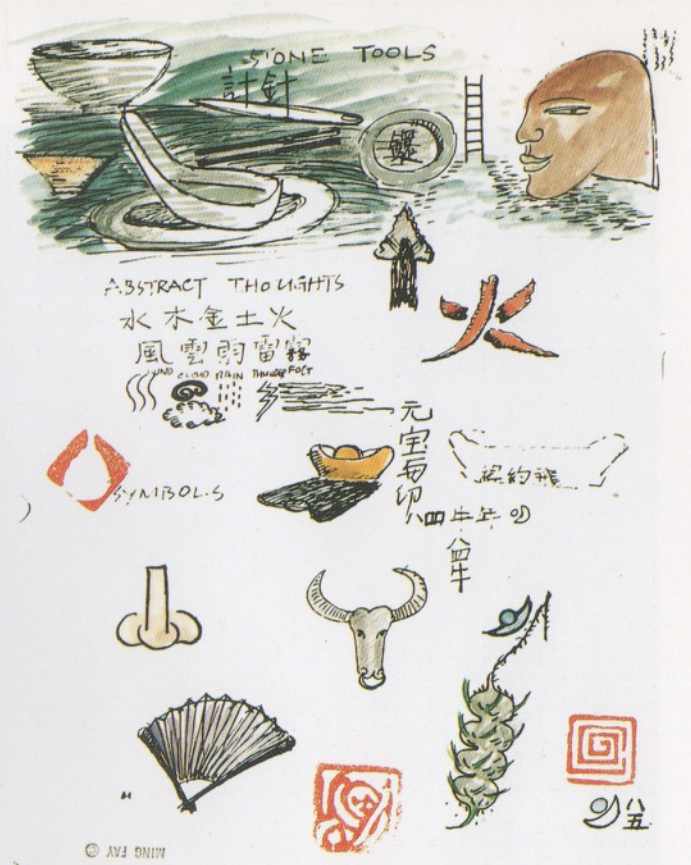 STONE TOOLS
計針
ABSTRACT THOUGHTS
水木金土火
風雲雨雷霧
WIND CLOUD RAIN THUNDER FOG
火
SYMBOLS
元宝
八四牛年
八四牛
八五
© MING FAY